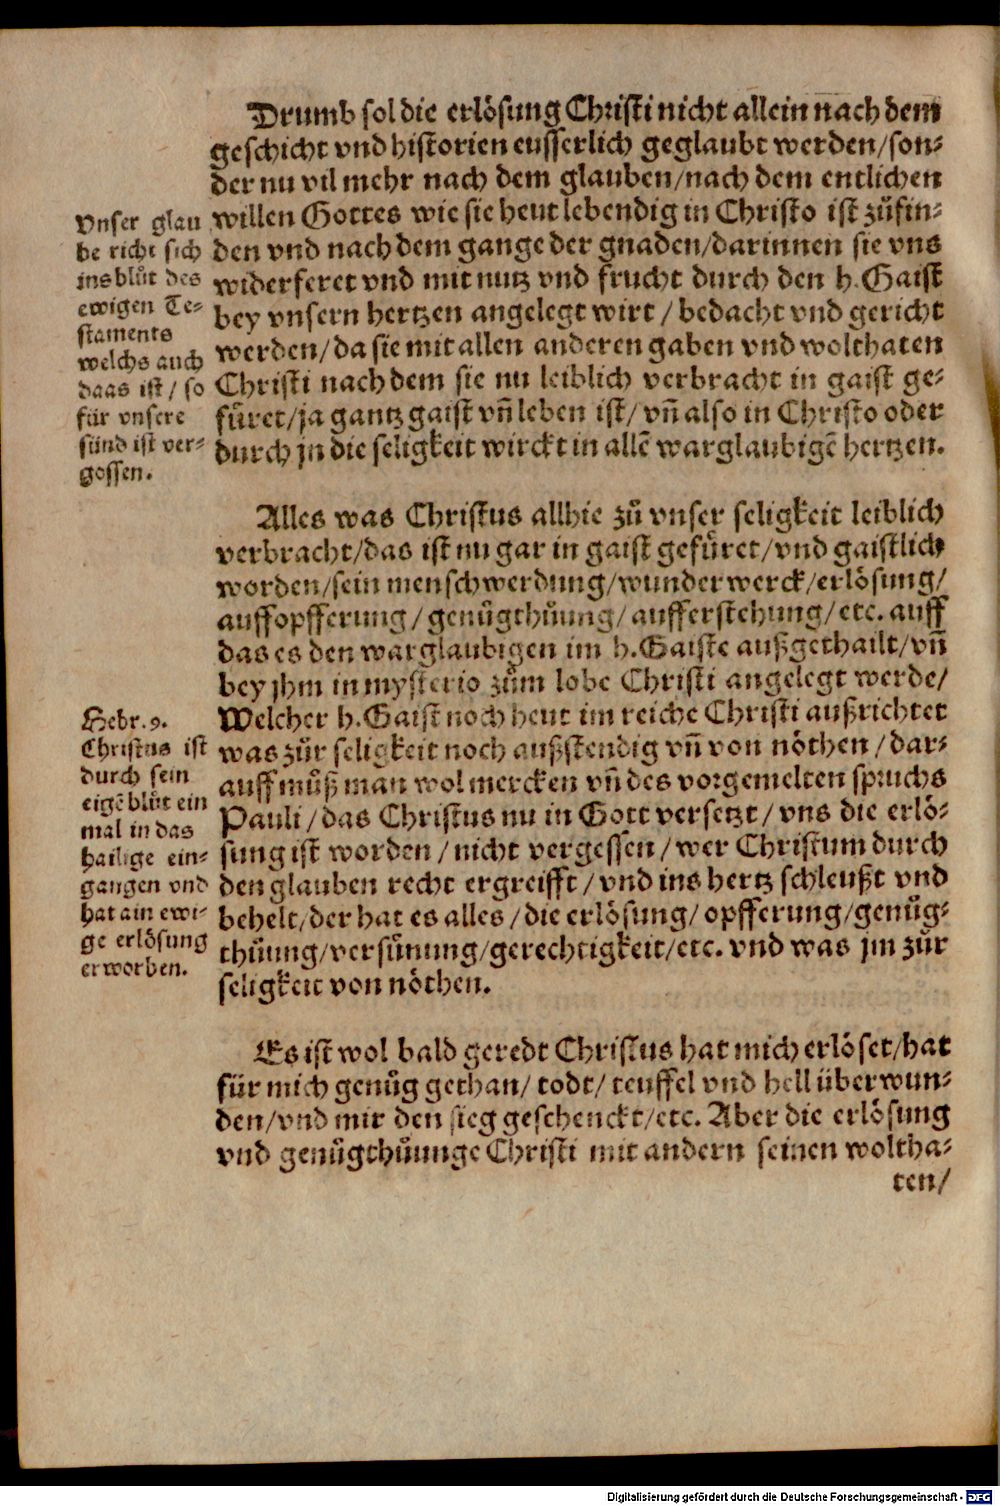 Drumb sol die erlösung Christi nicht allein nach dem
geschicht vnd historien eusserlich geglaubt werden/son-
der nu vil mehr nach dem glauben/nach dem entlichen
willen Gottes wie sie heut lebendig in Christo ist zůfin-
den vnd nach dem gange der gnaden/darinnen sie vns
widerferet vnd mit nutz vnd frucht durch den h. Gaist
bey vnsern hertzen angelegt wirt / bedacht vnd gericht
werden/da sie mit allen anderen gaben vnd wolthaten
Christi nach dem sie nu leiblich verbracht in gaist ge-
fůret/ja gantz gaist vñ leben ist/ vñ also in Christo oder
durch jn die seligkeit wirckt in allẽ warglaubigẽ hertzen.
Vnser glau
be richt sich
ins blůt des
ewigen Te-
staments
welchs auch
daas ist / so
für vnsere
sünd ist ver-
gossen.
Alles was Christus allhie zů vnser seligkeit leiblich
verbracht/das ist nu gar in gaist gefůret/vnd gaistlich
worden/sein menschwerdung/wunderwerck/erlösung/
auffopfferung/genůgthůung/aufferstehung/etc. auff
das es den warglaubigen im h. Gaiste außgethailt/vñ
bey jhm in mysterio zům lobe Christi angelegt werde/
Welcher h. Gaist noch heut im reiche Christi außrichtet
was zůr seligkeit noch außstendig vñ von nöthen / dar-
auff můß man wol mercken vñ des vorgemelten spruchs
Pauli / das Christus nu in Gott versetzt / vns die erlö-
sung ist worden / nicht vergessen / wer Christum durch
den glauben recht ergreifft / vnd ins hertz schleußt vnd
behelt/der hat es alles / die erlösung/ opfferung/genůg-
thůung/versůnung/gerechtigkeit/etc. vnd was jm zůr
seligkeit von nöthen.
Hebr. 9.
Christus ist
durch sein
eigẽ blůt ein
mal in das
hailige ein-
gangen vnd
hat ain ewi-
ge erlösung
erworben.
Es ist wol bald geredt Christus hat mich erlöset/hat
für mich genůg gethan/ todt/ teuffel vnd hell überwun-
den/vnd mir den sieg geschenckt/etc. Aber die erlösung
vnd genůgthůunge Christi mit andern seinen woltha-
ten/
Digitalisierung gefördert durch die Deutsche Forschungsgemeinschaft - DFG